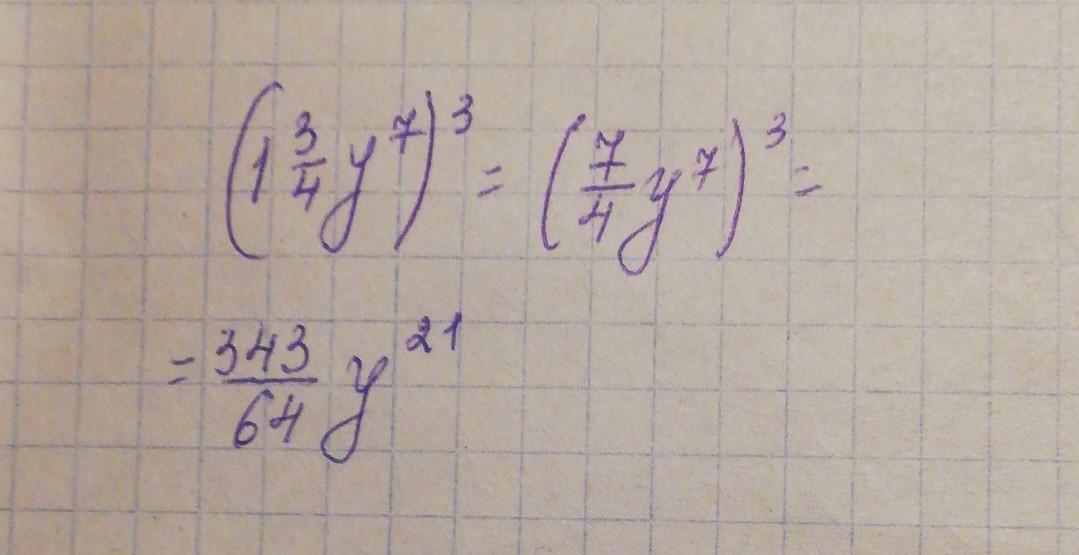 (1 3/4 y^7)^3 = (7/4 y^7)^3 =
= 343/64 y^21